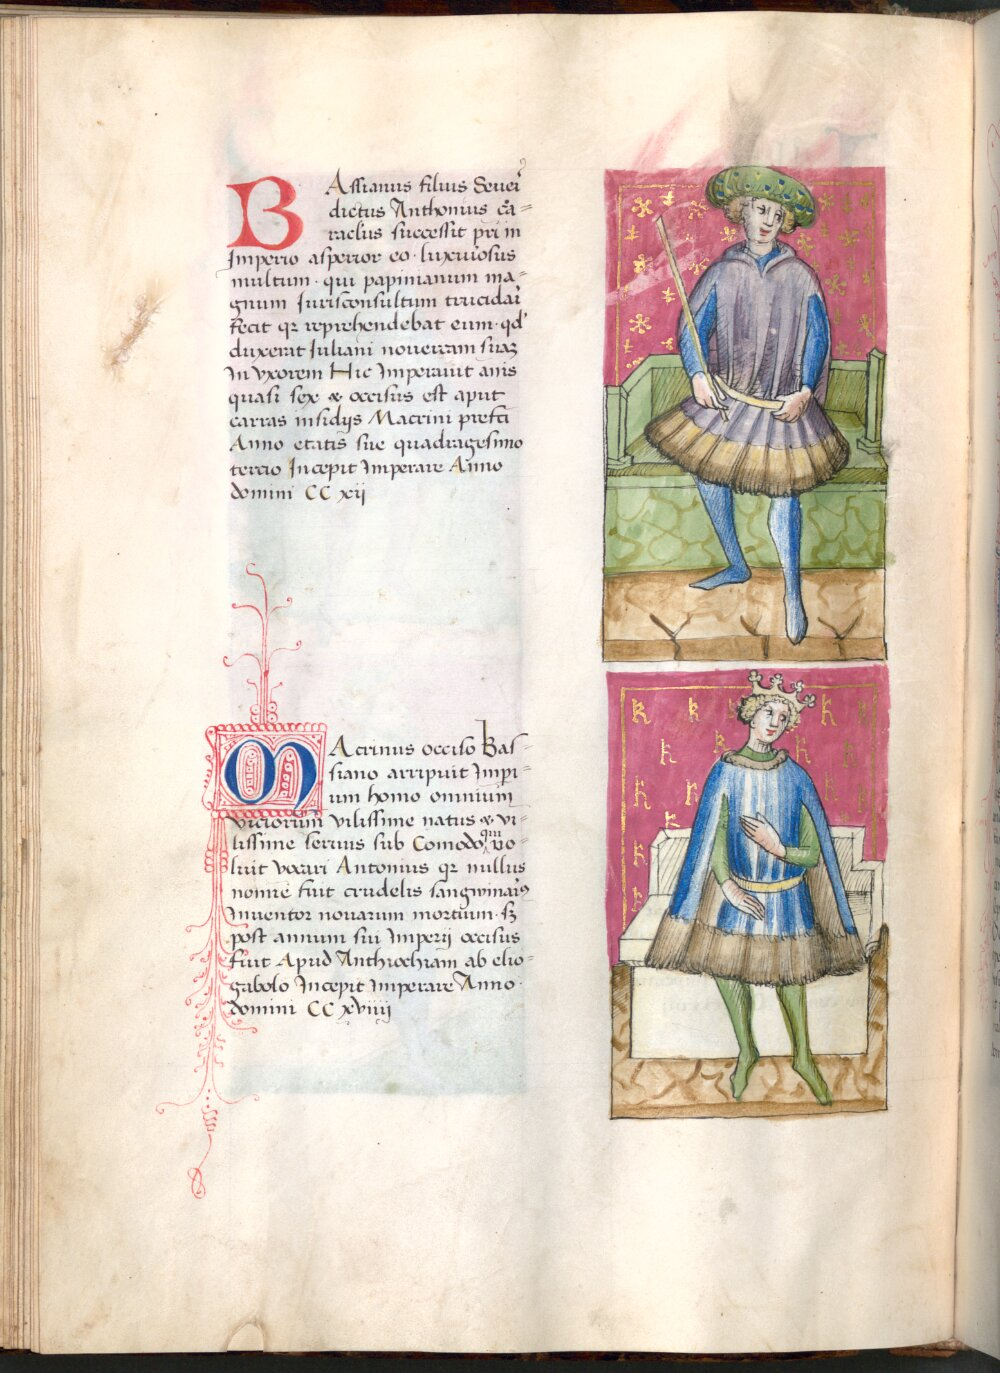 BAssianus filius Seueri
dictus Anthonius ca=
raclus successit pri in
Imperio asperior eo · luxuriosus
multum · qui papinianum ma=
gnum Jurisconsultum trucidari
fecit qz reprehendebat eum · qd
duxerat Juliani nouercam suaz
In vxorem Hic Imperauit anis
quasi sex & occisus est aput
carras insidijs Macrini prefcti
Anno etatis sue quadragesimo
tercio Incepit Imperare Anno
domini CC xij
MAcrinus occiso Bas=
siano arripuit Impi=
um homo omnium
viciorum vilissime natus & vi=
lissime seruus sub Comodo qui uo=
luit vocari Antonius qz nullus
nomie fuit crudelis sangwinari9
Inuentor nouarum mortium · sz
post annum sui Imperij occisus
fuit Apud Anthiochiam ab elio=
gabolo Incepit Imperare Anno
domini CC xviiij